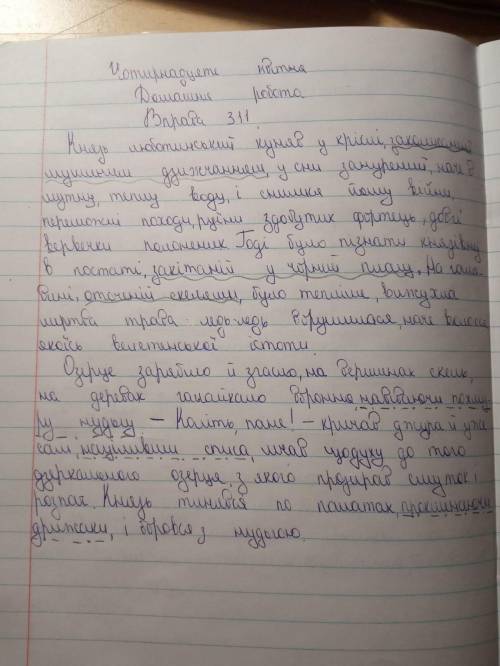 Чотирнадцяте квітня
Домашня робота
Вправа 311
Князь люботинський куняв у кріслі, заколисаний
мушиним дзижчанням, у сни занурений, наче в
мутну, теплу воду, і снилися йому війни,
переможні походи, руїни здобутих фортець, довгі
вервечки полонених. Годі було пізнати князівну
в постаті, закітаній у чорний плащ. На гала-
вині, оточеній скелями, було тепліше, висухла
мертва трава ледь-ледь ворушилася, наче волосся
якоїсь велетенської істоти.
Озерце зарябіло й згасло, на вершинах скель,
на деревах галайкало вороння, навіваючи пону-
ру нудьгу. – Коліть, пане! – кричав джура й ута
сам, націливши списа, мчав щодуху до того
дзеркального озерця, з якого прозирав смуток і
розпач. Князь тинявся по палатах, проклинаючи
дрижаки, і боровся з нудьгою.